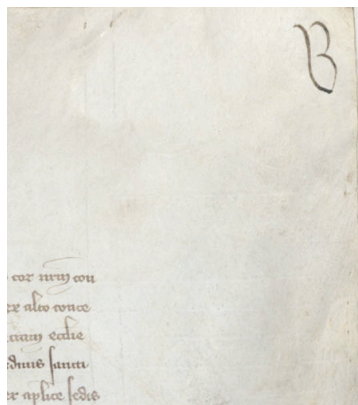 B
cor nr̄m con
ex alto conce
ecclie
sancti
aplice sedis